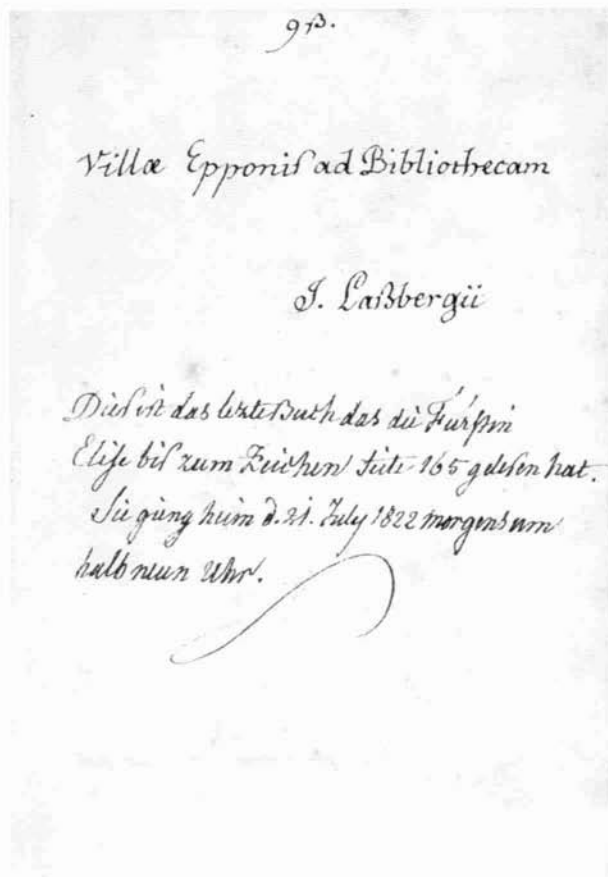 913.
Villæ Epponis ad Bibliothecam
J. Laßbergii
Dies ist das lezte Buch das die Fürstin
Elise bis zum Zeichen seite 165 gelesen hat.
Sie gieng heim d. 21. July 1822 morgens um
halb neun Uhr.